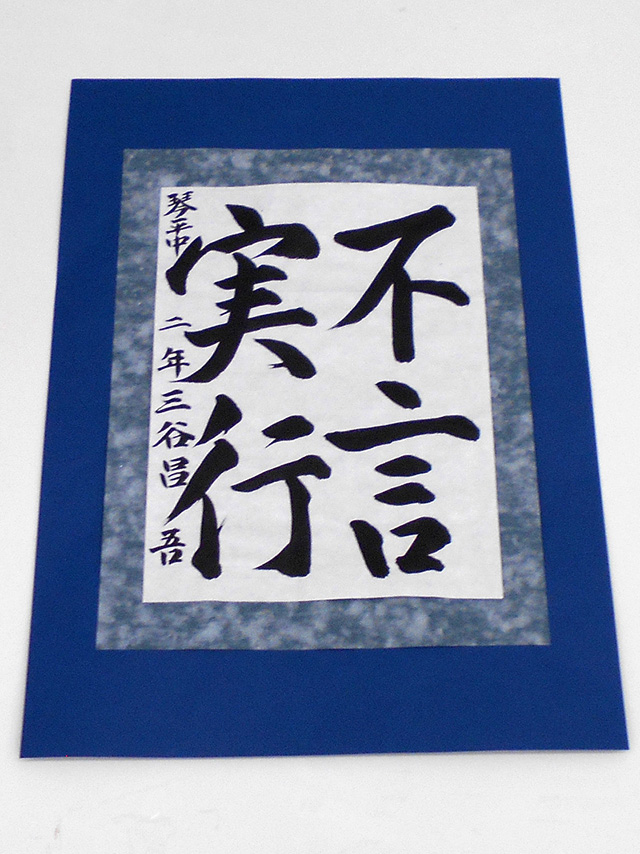 不言
実行
琴平中 二年 三谷昌吾